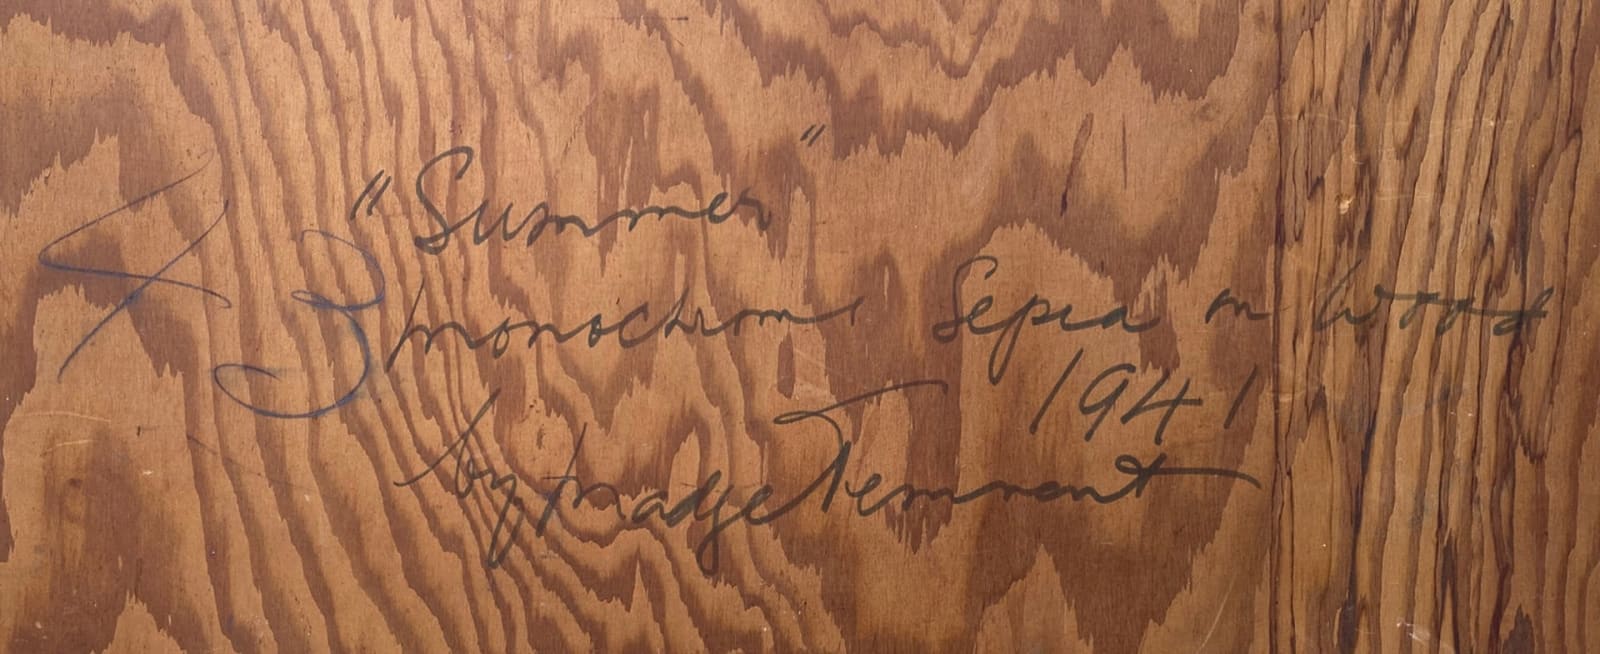 "Summer"
43 monochrome Sepia on Wood
1941
by Madge Tennent